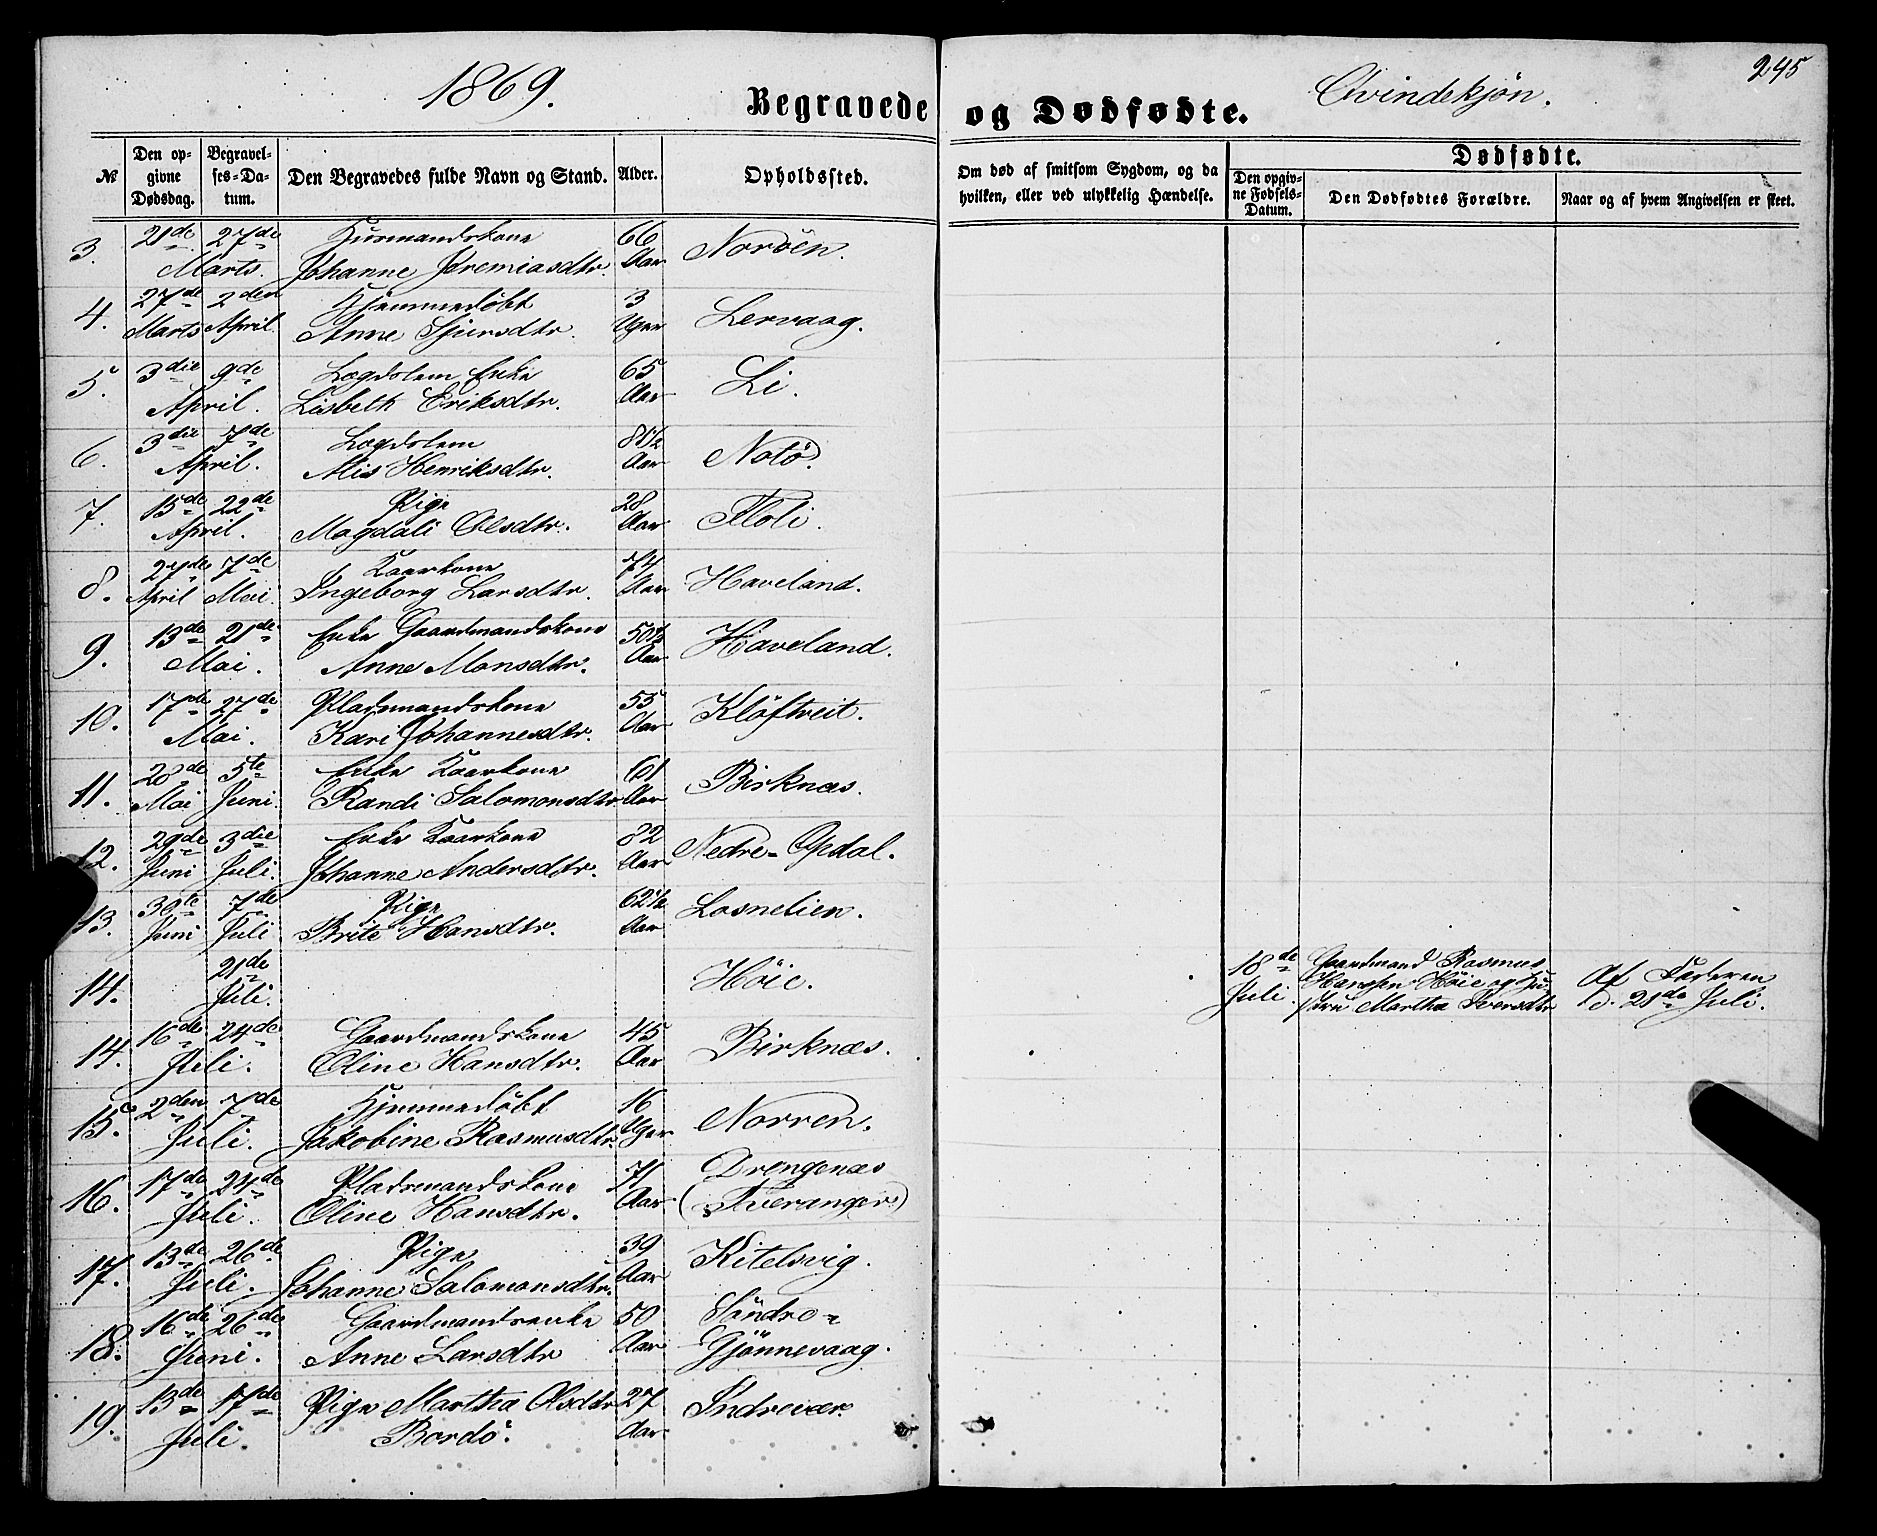 1869.
Begravede og Dødfødte.
Qvindekjøn.
245
№
Den opgivne Dødsdag.
Begravelses-Datum.
Den Begravedes fulde Navn og Stand.
Alder.
Opholdssted.
Om død af smitsom Sygdom, og da hvilken, eller ved ulykkelig Hændelse.
Dødfødte.
Den opgivne Fødsels-Datum.
Den Dødfødtes Forældre.
Naar og af hvem Angivelsen er skeet.
3. 21de 27de Huusmandskone 66
Marts. Johanne Jeremiasdtr. Aar Nordöen.
4. 27de 2den Hjemmedöbt 3
Marts April Anne Sjursdtr. Uger Lervaag.
5. 3die 9de Lægdslem Enke 65
April. Lisbeth Eriksdtr. Aar Li.
6. 3die 7de Lægdslem 81½
April. Alis Henriksdtr. Aar Notö.
7. 15de 22de Pige 28
April. Magdali Olsdtr. Aar Floli.
8. 27de 7de Kaarkone 74
April Mai. Ingeborg Larsdtr. Aar Haveland.
9. 13de 21de Enke Gaardmandskone 50½
Mai. Anne Monsdtr. Aar Haveland.
10. 17de 27de Pladsmandskone 55
Mai. Kari Johannesdtr. Aar Klöftveit.
11. 28de 5te Enke Kaarkone 61
Mai Juni. Randi Salomonsdtr Aar Birknæs.
12. 29de 3die Enke Kaarkone 82
Juni Juli. Johanne Andersdtr. Aar Nedre-Opdal.
13. 30te 7de Pige 62½
Juni Juli Brite Hansdtr. Aar Losnelien.
14. 21de Juli. Höie.
18de Juli. Gaardmand Rasmus
Hansen Höie og Hu-
stru Martha Iversdtr
Af Faderen
d. 21de Juli.
14. 16de 24de Gaardmandskone 45
Juli. Oline Hansdtr. Aar Birknæs.
15. 2den 7de Hjemmedöbt 16
Juli. Jakobine Rasmusdtr. Uger Norren.
16. 17de 24de Pladsmandskone 71 Drengenæs
Juli. Oline Hansdtr. Aar (Tveranger)
17. 13de 26de Pige 39
Juli. Johanne Salomonsdtr. Aar Kitelsvig.
18. 16de 26de Gaardmandsenke 50 Söndre-
Juni. Anne Larsdtr Aar Gjönnevaag.
19. 13de 17de Pige Martha Olsdtr 27 Indrevær.
Juli. Bordö. Aar